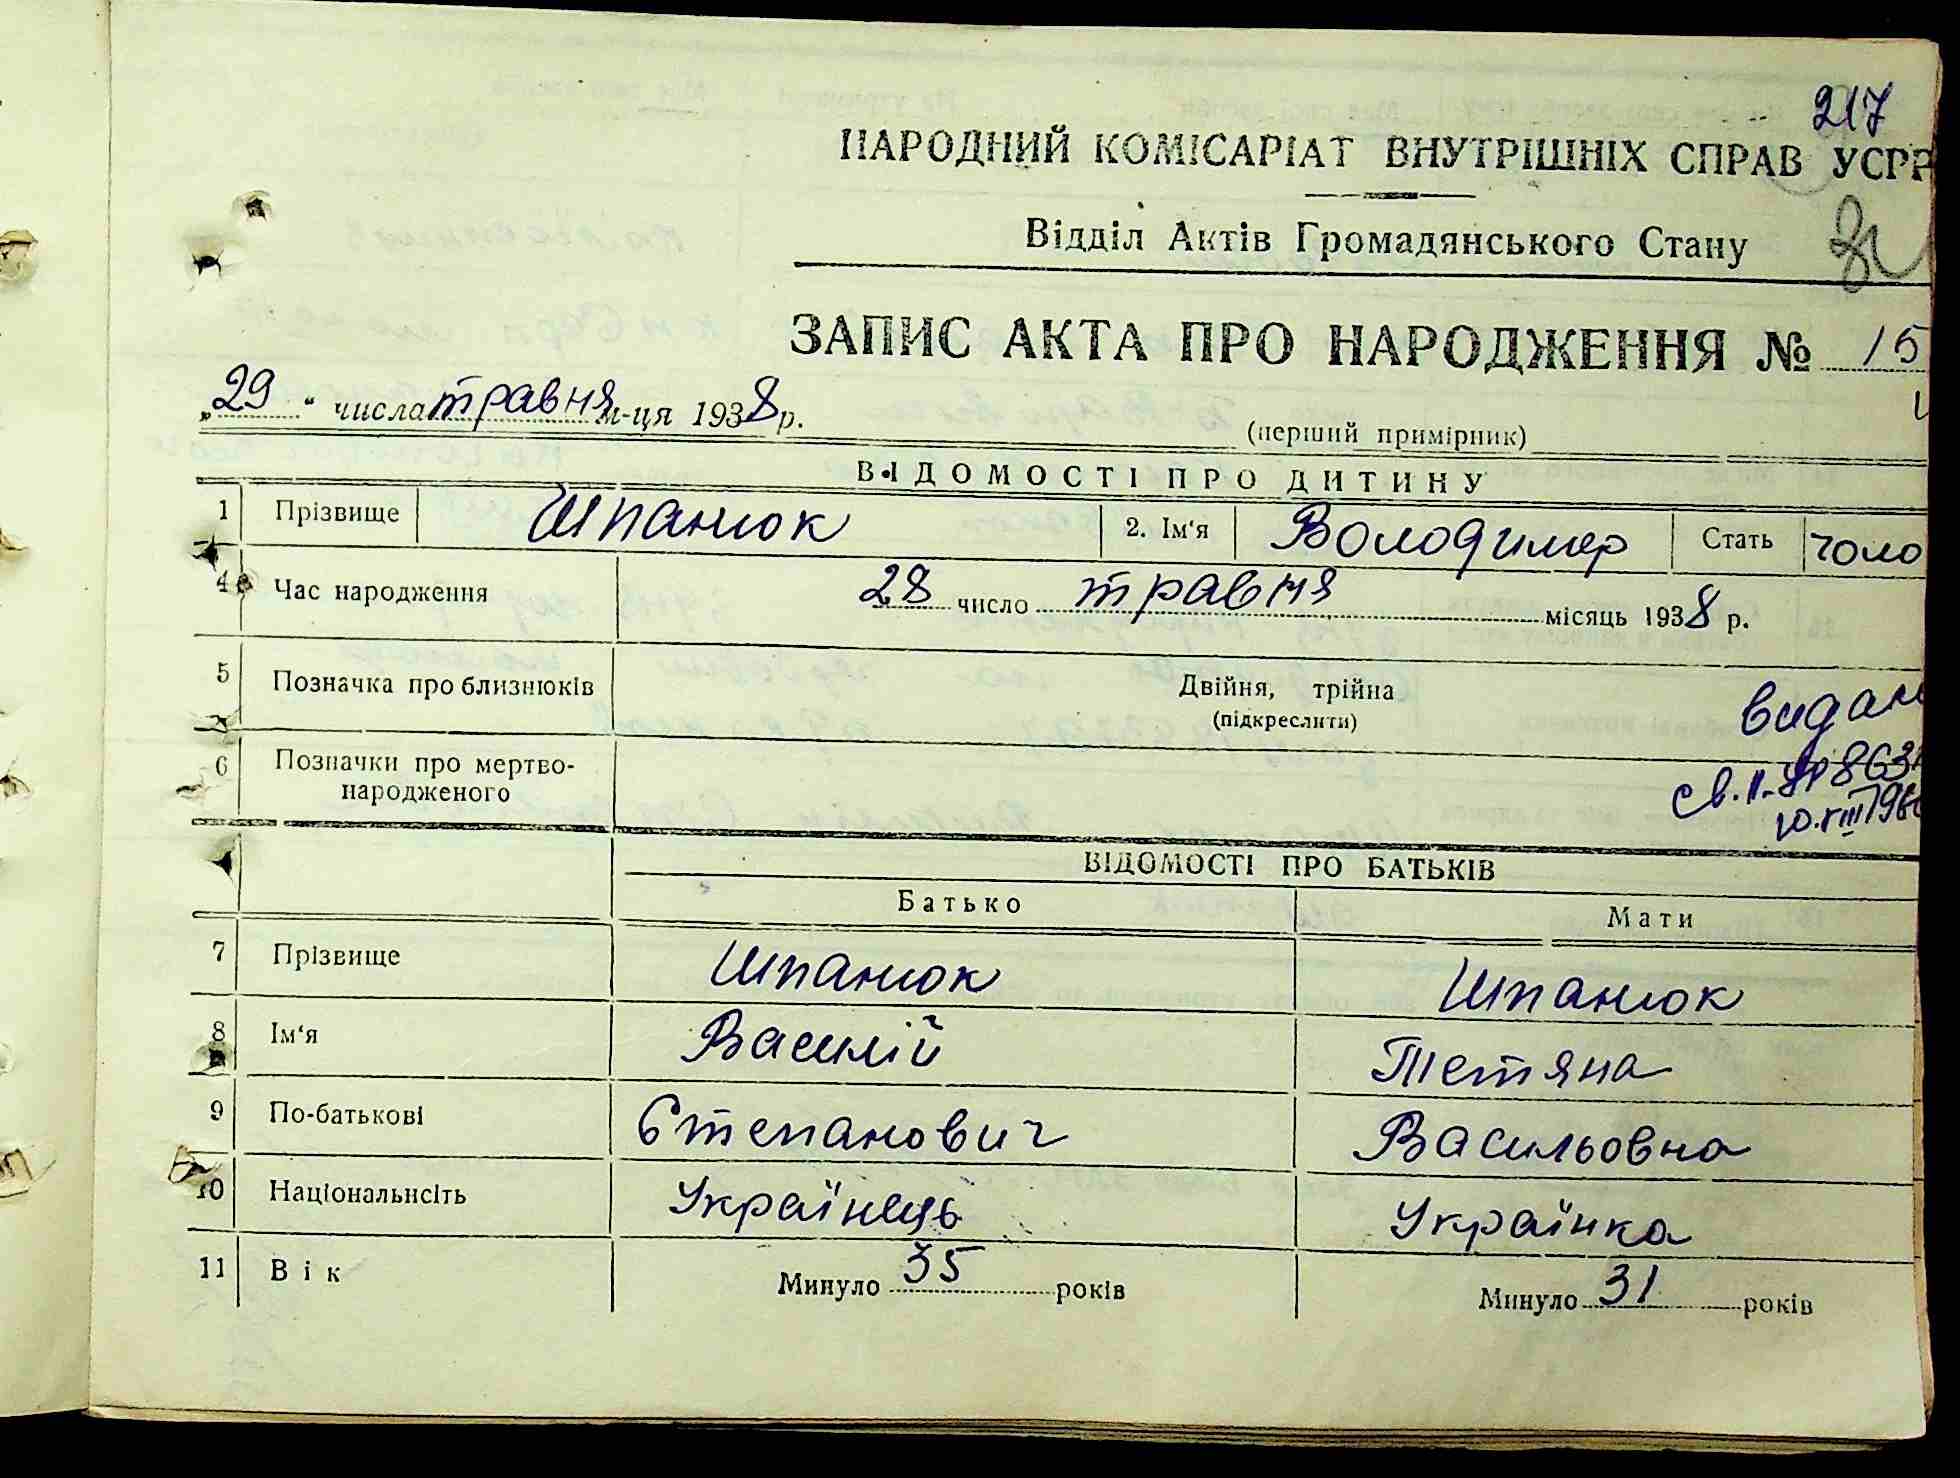 217
НАРОДНИЙ КОМІСАРІАТ ВНУТРІШНІХ СПРАВ УСРР
Відділ Актів Громадянського Стану
ЗАПИС АКТА ПРО НАРОДЖЕННЯ № 15
„29“ числа травня м-ця 1938 р.
(перший примірник)
ВІДОМОСТІ ПРО ДИТИНУ
1 Прізвище Шпанюк 2. Ім‘я Володимер Стать чоло
4 Час народження 28 число травня місяць 1938 р.
5 Позначка про близнюків Двійня, трійна
(підкреслити)
видан
6 Позначки про мертво-
народженого
св. II-
ВІДОМОСТІ ПРО БАТЬКІВ
Батько Мати
7 Прізвище Шпанюк Шпанюк
8 Ім‘я Василій Тетяна
9 По-батькові Степанович Васильовна
10 Національнсіть Українець Українка
11 Вік Минуло 35 років Минуло 31 років